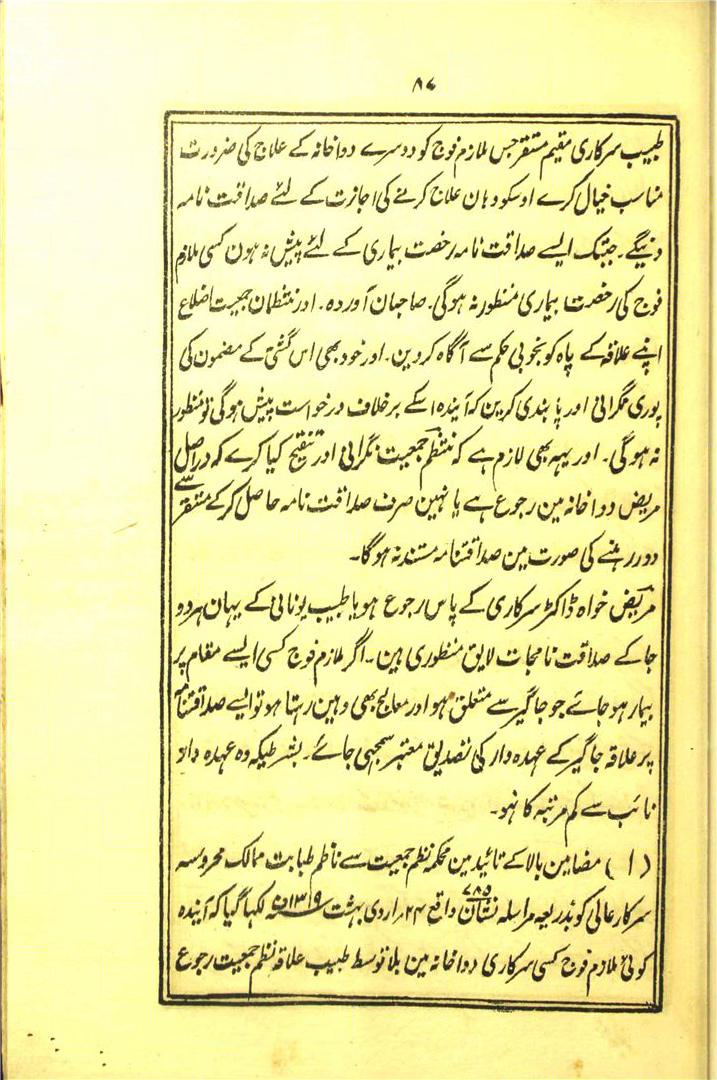 ۸۷
طبیب سرکاری مقیم مستقر جس ملازم فوج کو دوسرے دواخانہ کے علاج کی ضرورت
مناسب خیال کرے اوسکو وہان علاج کرنے کی اجازت کے لئے صداقت نامہ
دینگے۔ جبتک ایسے صداقت نامہ رخصت بیماری کے لئے پیش نہ ہون کسی ملازم
فوج کی رخصت بیماری منظور نہ ہوگی۔ صاحبان آوردہ۔ اور منتظمان جمعیت اضلاع
اپنے علاقہ کے پاہ کو بخوبی حکم سے آگاہ کردین۔ اور خود بھی اس گشتی کے مضمون کی
پوری نگرانی اور پابندی کرین کہ آیندہ اسکے برخلاف درخواست پیش ہوگی تو منظور
نہ ہوگی۔ اور یہہ بھی لازم ہے کہ منتظم جمعیت نگرانی اور تنقیح کیا کرے کہ دراصل
مریض دواخانہ مین رجوع ہے یا نہین صرف صداقت نامہ حاصل کرکے مستقر سے
دور رہنے کی صورت مین صداقتنامہ مستند نہ ہوگا۔
مریض خواہ ڈاکٹر سرکاری کے پاس رجوع ہو یا طبیب یونانی کے یہان ہر دو
جاکے صداقت نامجات لایق منظوری ہین۔ اگر ملازم فوج کسی ایسے مقام پر
بیمار ہوجائے جو جاگیر سے متعلق ہو اور معالج بھی وہین رہتا ہو تو ایسے صداقتنامہ
پر علاقہ جاگیر کے عہدہ دار کی تصدیق معتبر سمجہی جائے۔ بشرطیکہ وہ عہدہ دار
نائب سے کم مرتبہ کا نہو۔
(۱) مضامین بالا کے تائید مین محکمہ نظم جمعیت سے ناظم طبابت ممالک محروسہ
سرکار عالی کو بذریعہ مراسلہ نشان ۷۸۵ واقع ۲۴؍ اردی بہشت سنہ ۱۳۱۹ف لکہا گیا کہ آیندہ
کوئی ملازم فوج کسی سرکاری دواخانہ مین بلا توسط طبیب علاقہ نظم جمعیت رجوع